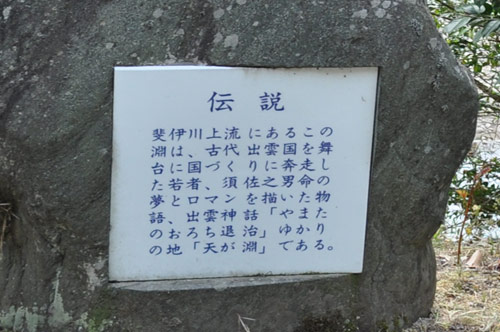 伝説
斐伊川上流にあるこの
淵は、古代出雲国を舞
台に国づくりに奔走し
た若者、須佐之男命の
夢とロマンを描いた物
語、出雲神話「やまた
のおろち退治」ゆかり
の地「天が淵」である。